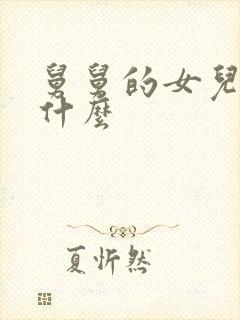 舅舅的女兒
什麼
夏忻然